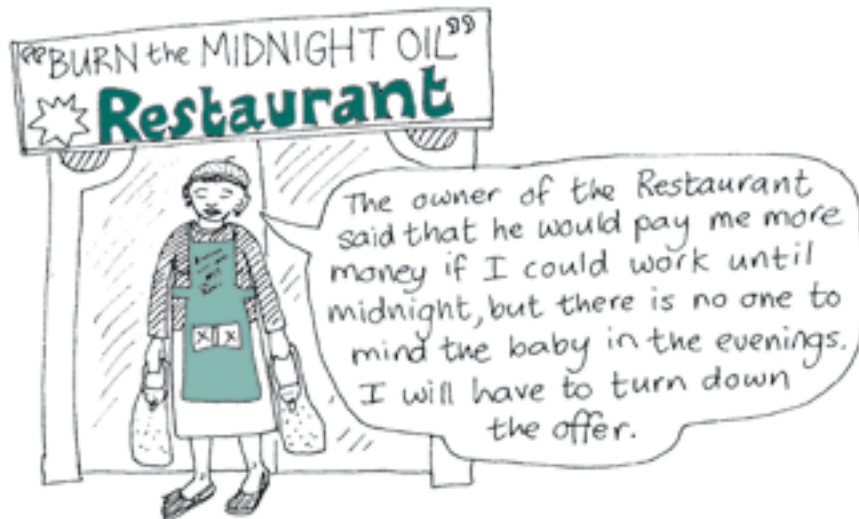 "BURN the MIDNIGHT OIL"
Restaurant
The owner of the Restaurant
said that he would pay me more
money if I could work until
midnight, but there is no one to
mind the baby in the evenings.
I will have to turn down
the offer.